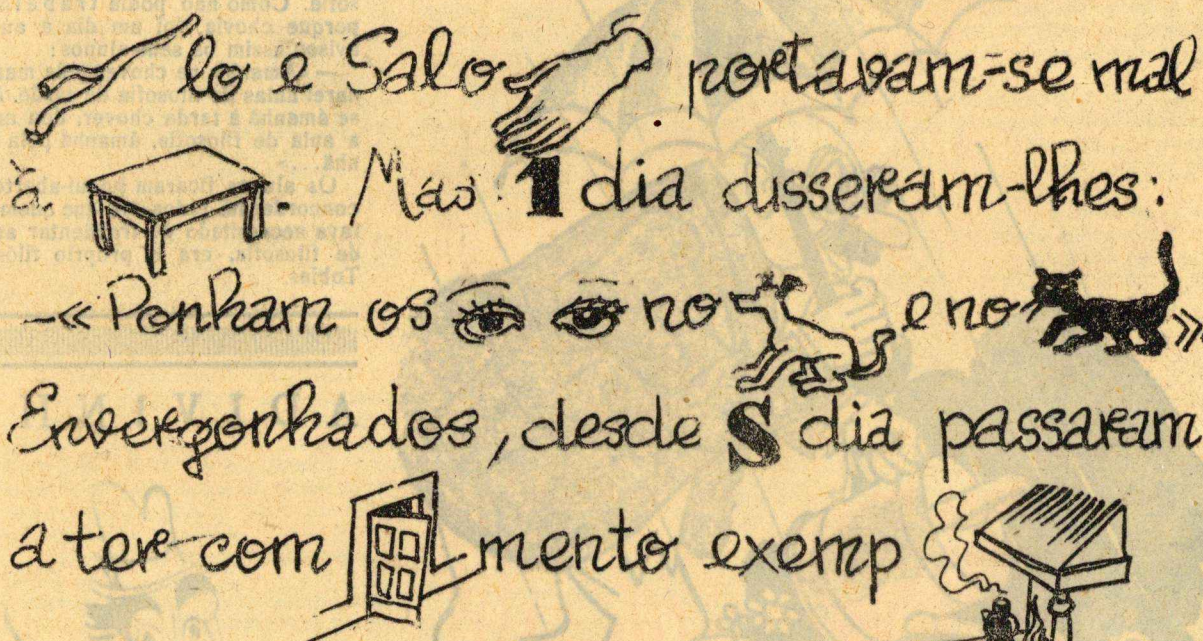 lo e Salo portavam-se mal
à. Mas 1 dia disseram-lhes:
-«Ponham os no e no »
Envergonhados, desde S dia passaram
a ter com mento exemp